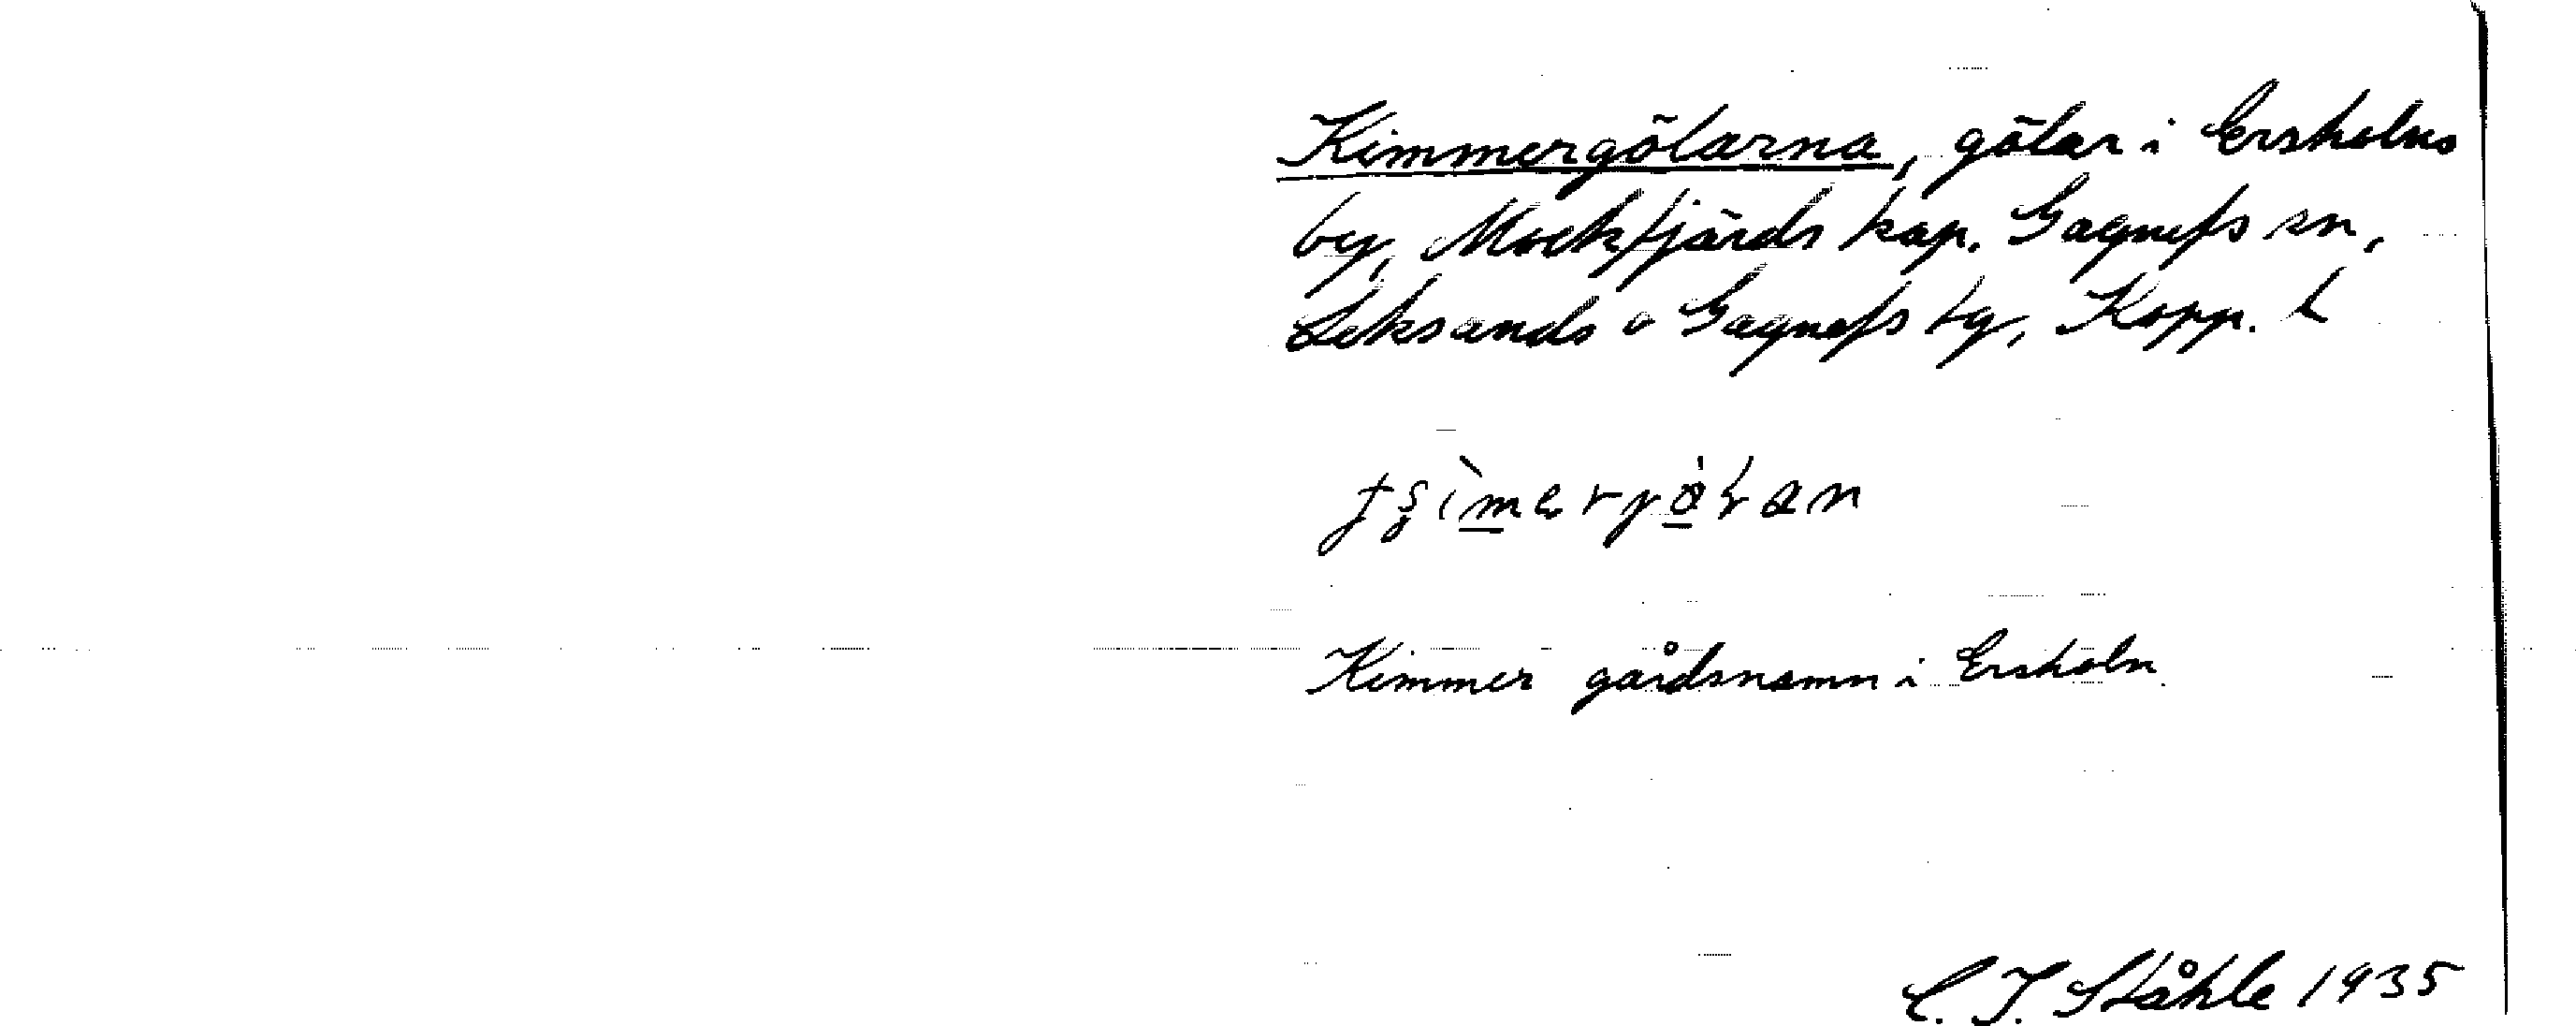 Kimmergölarna, gölar i Ersholns
by, Mockfjärds kap. Gagnefs sn,
Leksands o Gagnefs tg, Kopp. l
Kimmer gårdsnamn i Ersholn
C. I. Ståhle 1935